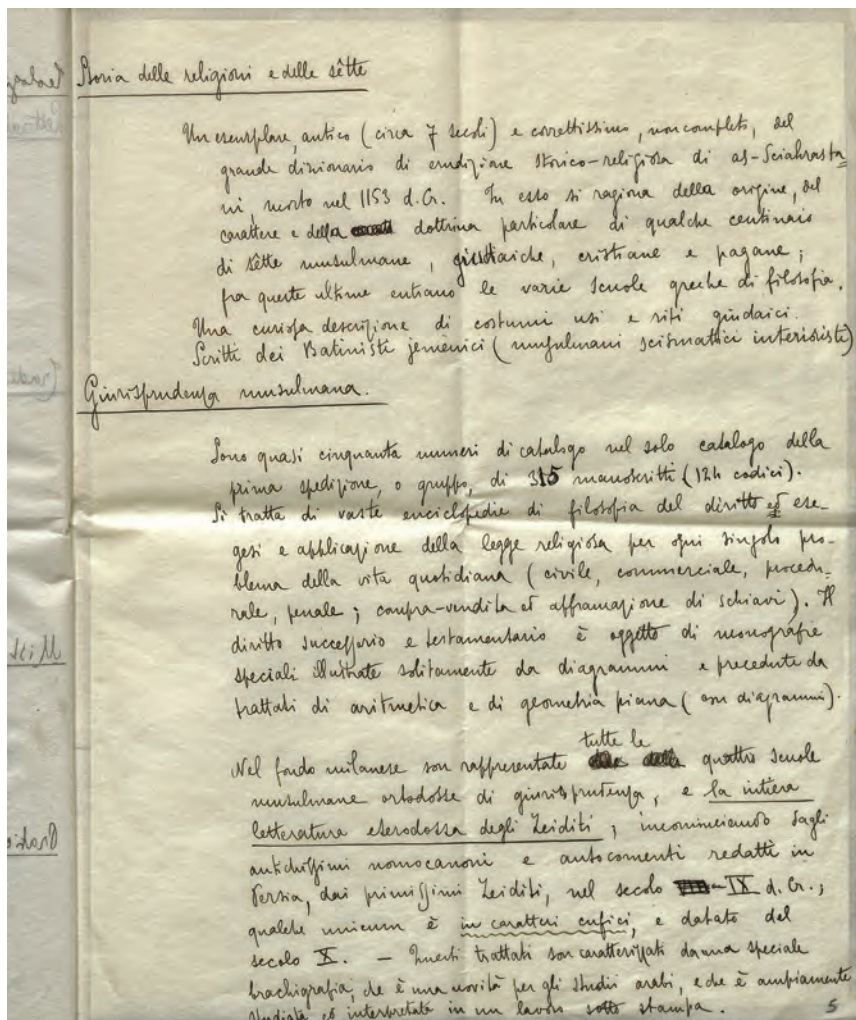 Storia delle religioni e delle sètte
Un esemplare, antico (circa 7 secoli) e correttissimo, non completo, del
grande dizionario di erudizione storico-religiosa di as-Sciahrasta=
ni, morto nel 1153 d. Cr. In esso si ragiona della origine, del
carattere e della dottrina particolare di qualche centinaio
di sètte musulmane, giudaiche, cristiane e pagane;
fra queste ultime entrano le varie scuole greche di filosofia.
Una curiosa descrizione di costumi usi e riti giudaici.
Scritti dei Batinisti jemenici (musulmani scismattici interioristi)
Giurisprudenza musulmana.
Sono quasi cinquanta numeri di catalogo nel solo catalogo della
prima spedizione, o gruppo, di 315 manoscritti (124 codici).
Si tratta di vaste enciclopedie di filosofia del diritto ed ese-
gesi e applicazione della legge religiosa per ogni singolo pro-
blema della vita quotidiana (civile, commerciale, procedu-
rale, penale; compra-vendita ed affrancazione di schiavi). Il
diritto successorio e testamentario è oggetto di monografie
speciali illustrate solitamente da diagrammi e precedute da
trattati di aritmetica e di geometria piana (con diagrammi).
tutte le
Nel fondo milanese son rappresentate quattro scuole
musulmane ortodosse di giurisprudenza, e la intiera
letteratura eterodossa degli Zeiditi, incominciando dagli
antichissimi nomocanoni e autocomenti redatti in
Persia, dai primissimi Zeiditi, nel secolo IX d. Cr.;
qualche unicum è in caratteri cufici, e datato del
secolo X. — Questi trattati son caratterizzati da una speciale
brachigrafia, che è una novità per gli studii arabi, e che è ampiamente
studiata ed interpretata in un lavoro sotto stampa.
5